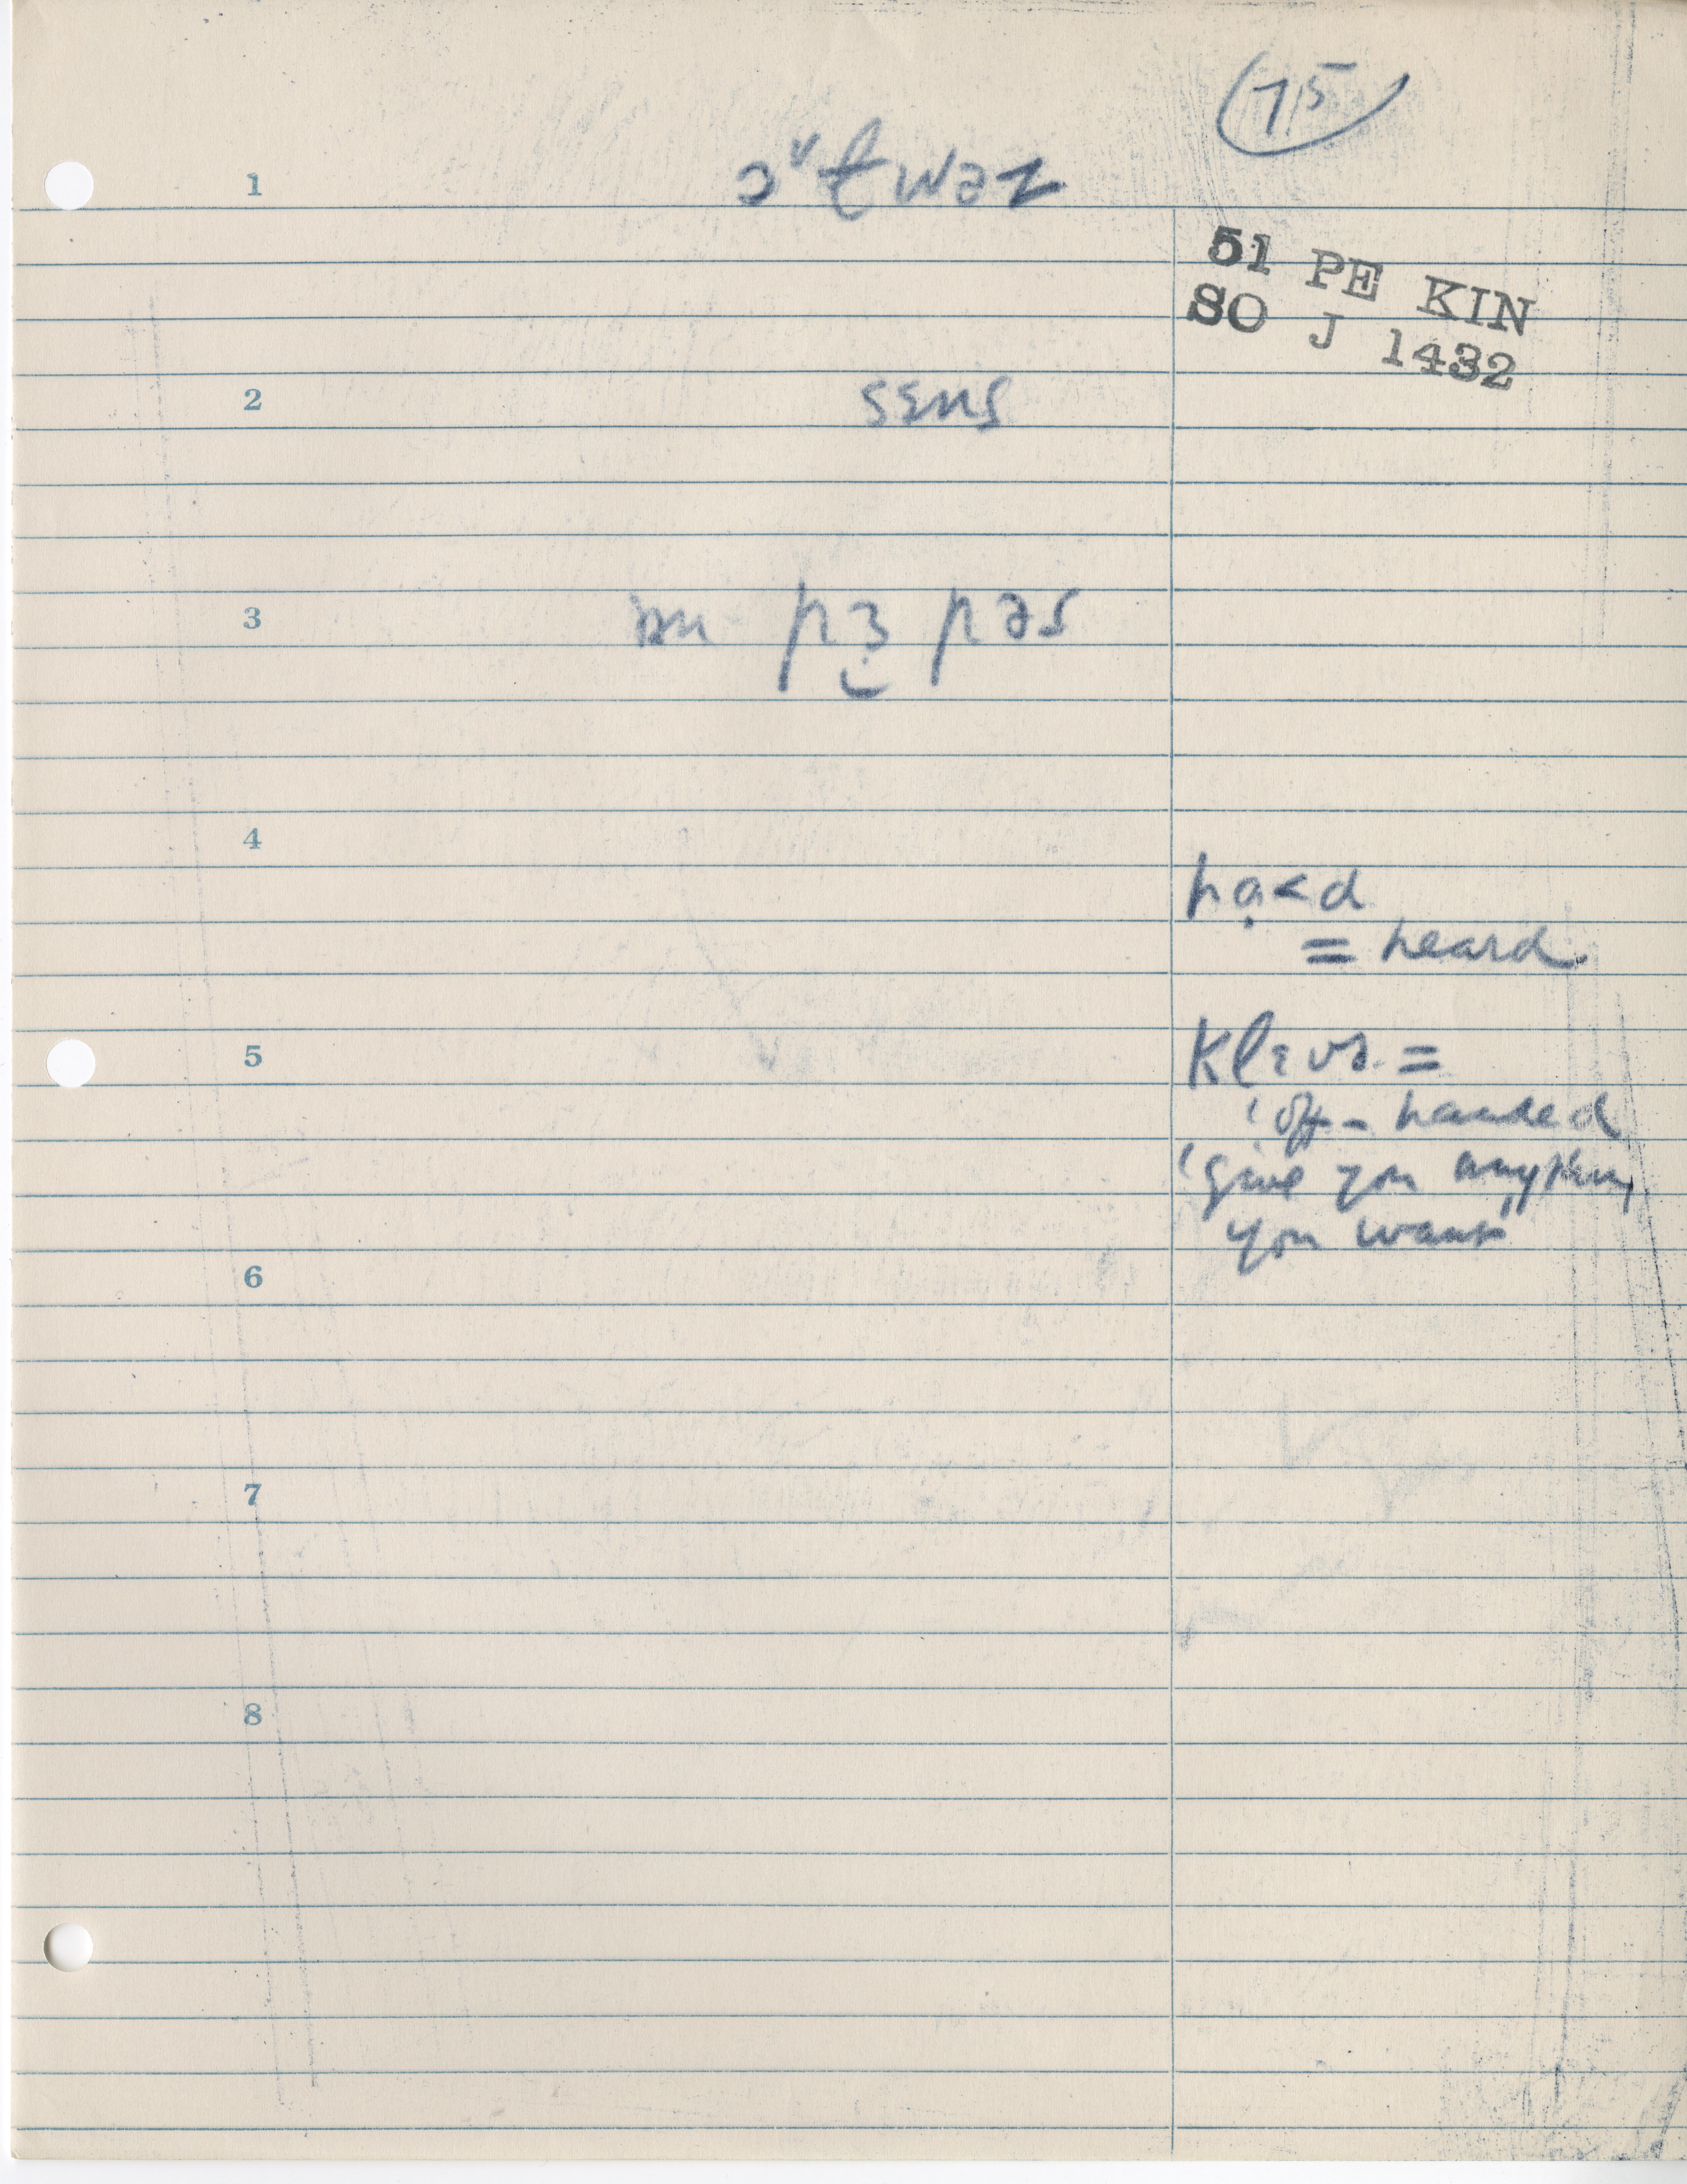 75
1
51 PE KIN
SO J 1432
2 sɛns
3
4
ha̤<d
= heard
5 klɛvɚ =
'off-handed
'give you anything
you want"
6
7
8